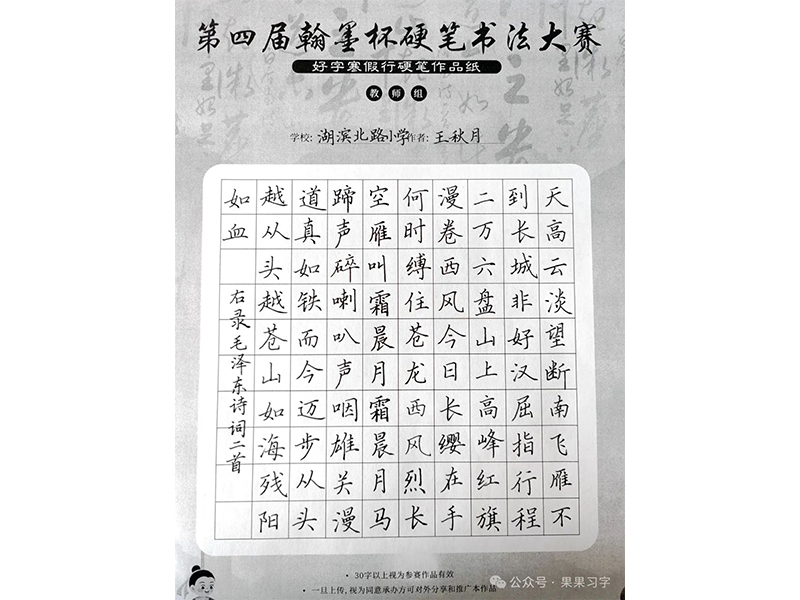 第四届翰墨杯硬笔书法大赛
好字寒假行硬笔作品纸
教师组
学校: 湖滨北路小学 作者: 王秋月
天高云淡望断南飞雁不
到长城非好汉屈指行程
二万六盘山上高峰红旗
漫卷西风今日长缨在手
何时缚住苍龙西风烈长
空雁叫霜晨月霜晨月马
蹄声碎喇叭声咽雄关漫
道真如铁而今迈步从头
越从头越苍山如海残阳
如血
右录毛泽东诗词二首
• 30字以上视为参赛作品有效
• 一旦上传,视为同意承办方可对外分享和推广本作品
公众号·果果习字